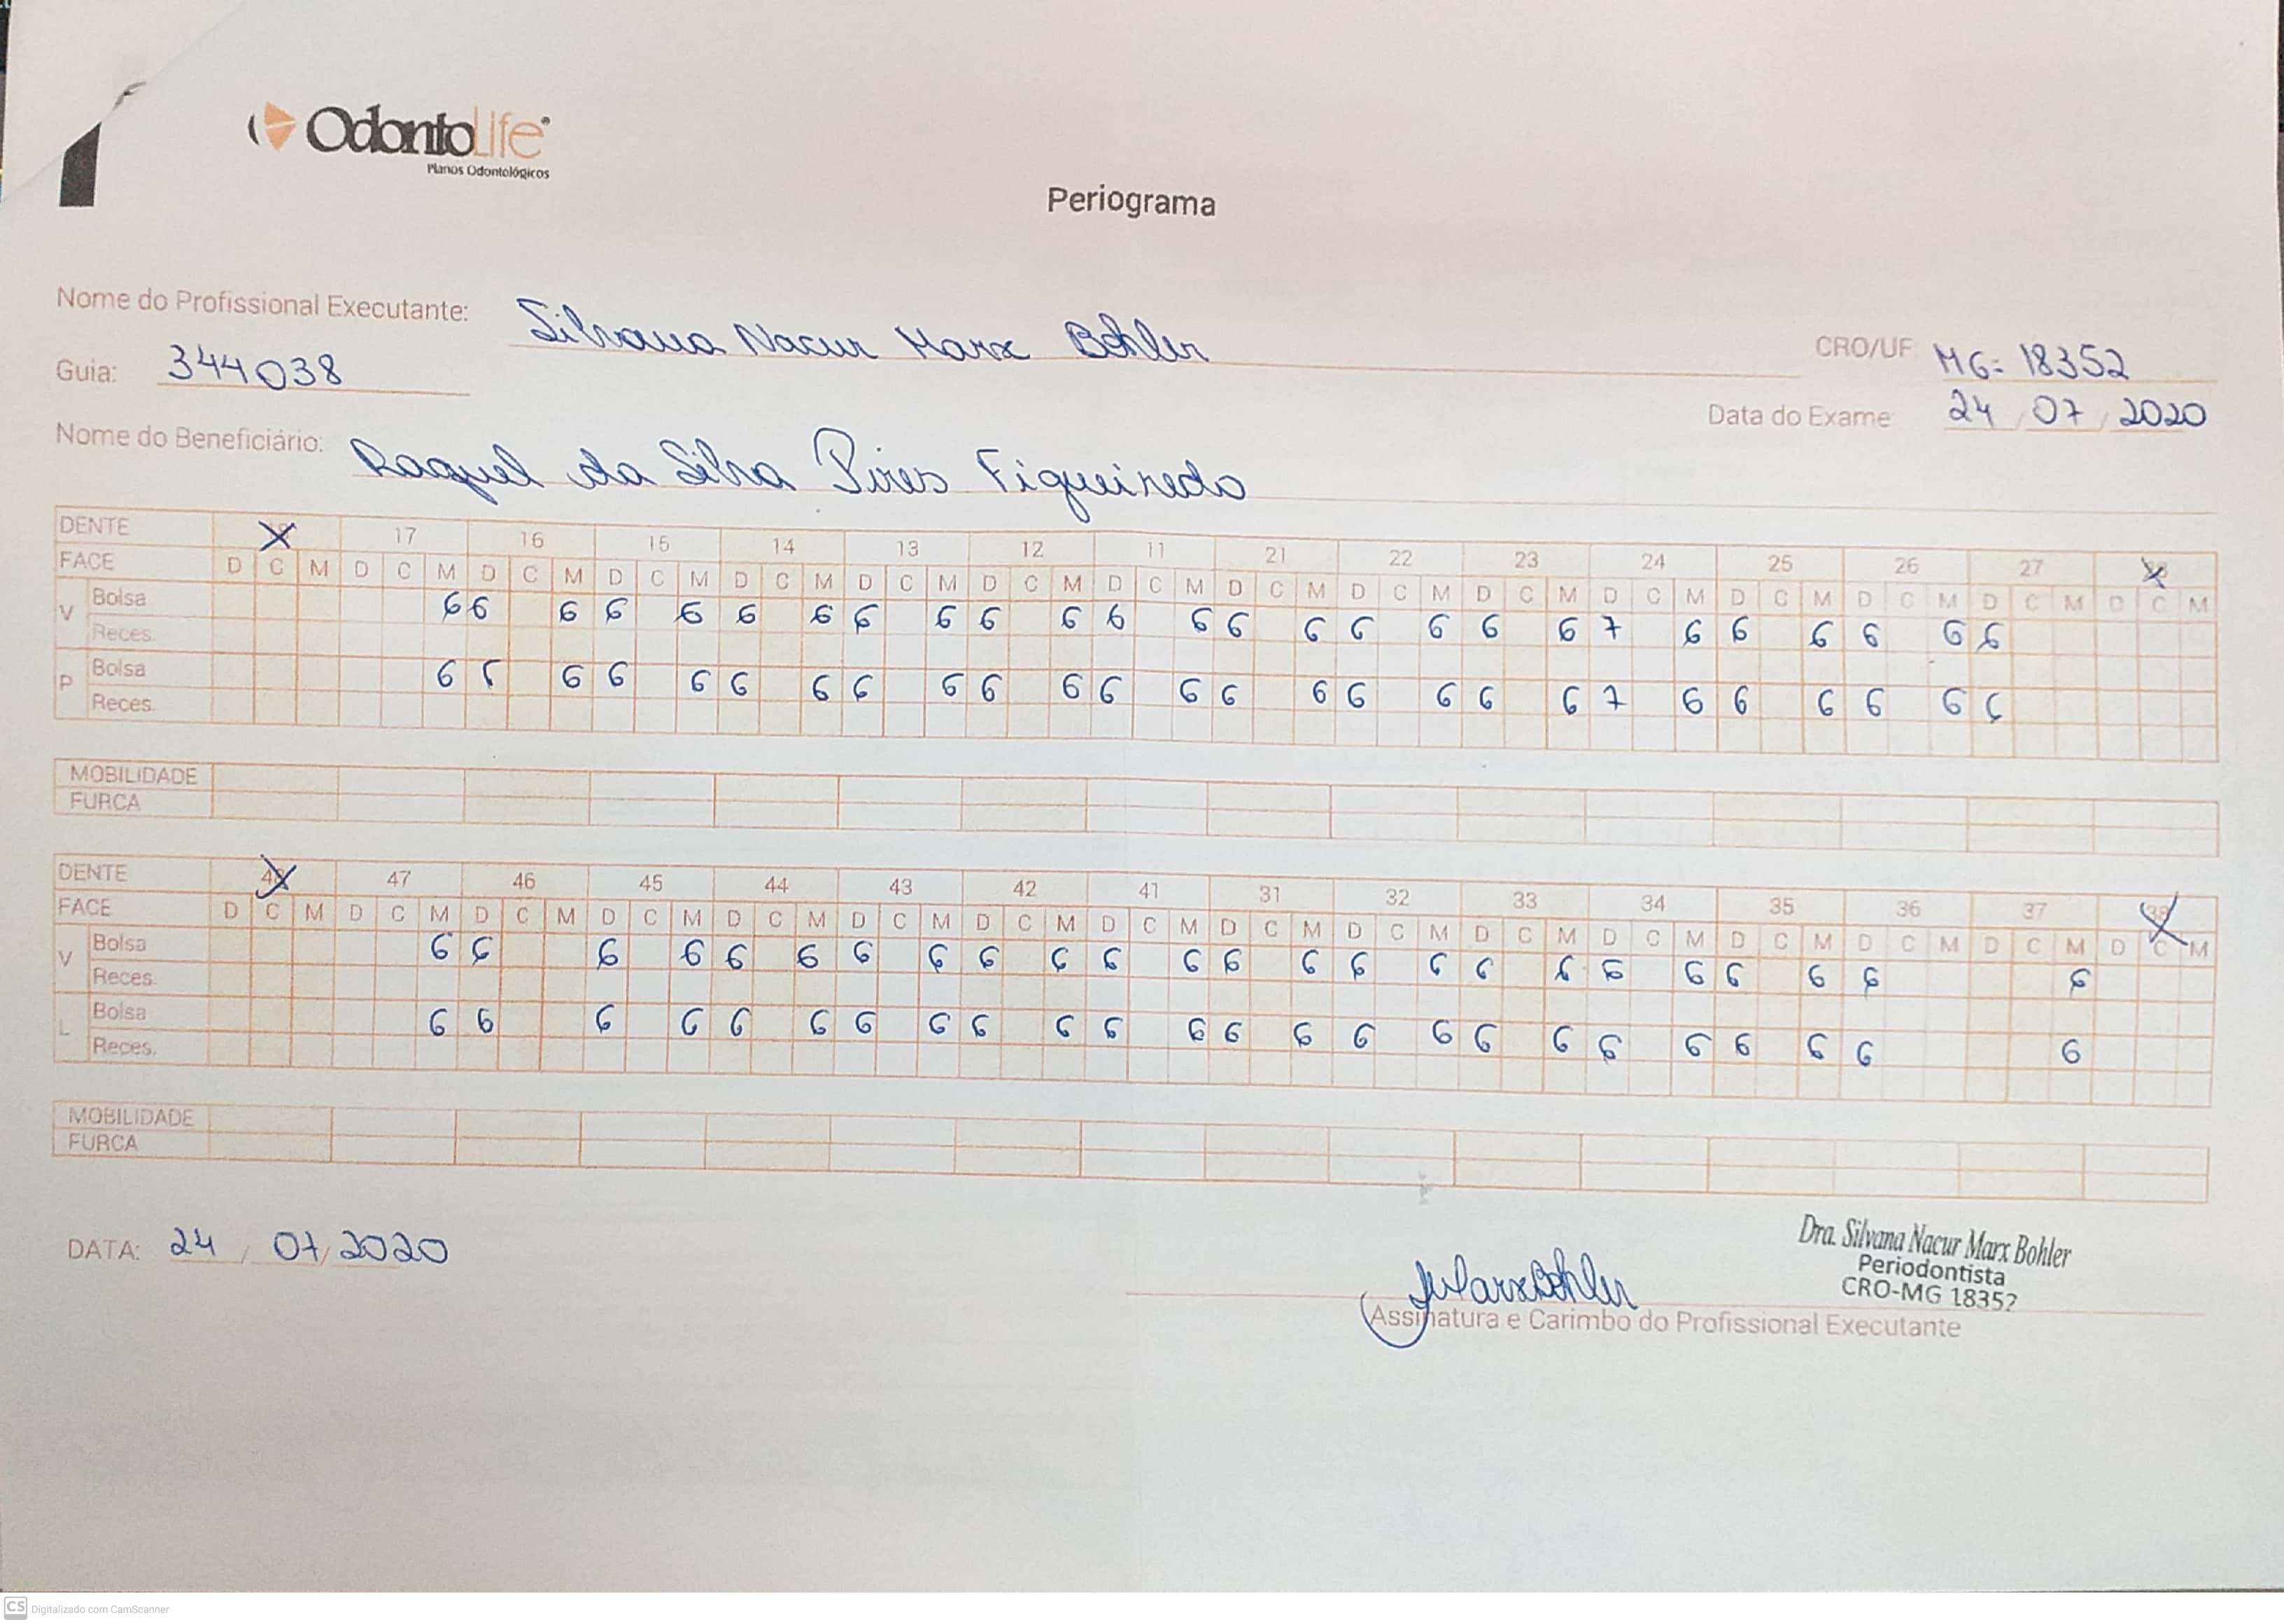 OdontoLife
Planos Odontológicos
Periograma
Nome do Profissional Executante: Silvana Nacur Marx Bohler
CRO/UF MG: 18352
Guia: 344038
Data do Exame 24 / 07 / 2020
Nome do Beneficiário: Raquel da Silva Pires Figueiredo
DENTE 17 16 15 14 13 12 11 21 22 23 24 25 26 27
FACE D C M D C M D C M D C M D C M D C M D C M D C M D C M D C M D C M D C M D C M D C M D C M D C M
V Bolsa 6 6 6 6 6 6 6 6 6 6 6 6 6 6 6 6 6 6 6 7 6 6 6 6 6 6
Reces.
P Bolsa 6 6 6 6 6 6 6 6 6 6 6 6 6 6 6 6 6 6 6 7 6 6 6 6 6 6
Reces.
MOBILIDADE
FURCA
DENTE 48 47 46 45 44 43 42 41 31 32 33 34 35 36 37 38
FACE D C M D C M D C M D C M D C M D C M D C M D C M D C M D C M D C M D C M D C M D C M D C M D C M
V Bolsa 6 6 6 6 6 6 6 6 6 6 6 6 6 6 6 6 6 6 6 6 6 6 6 6
Reces.
L Bolsa 6 6 6 6 6 6 6 6 6 6 6 6 6 6 6 6 6 6 6 6 6 6 6 6
Reces.
MOBILIDADE
FURCA
DATA: 24 / 07 / 2020
Dra. Silvana Nacur Marx Bohler
Periodontista
CRO-MG 18352
Assinatura e Carimbo do Profissional Executante
CS Digitalizado com CamScanner